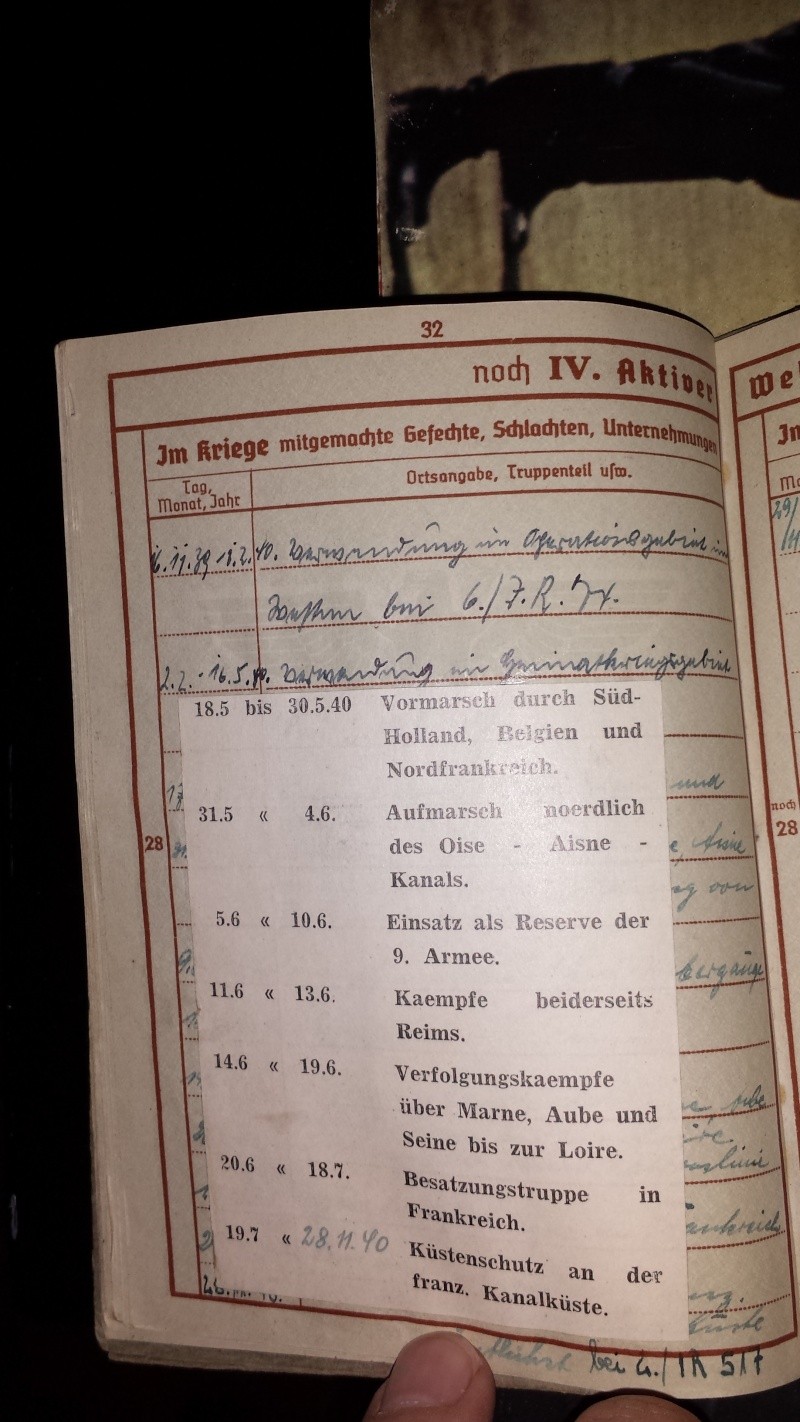 32
noch IV. Aktiver
We
Im Kriege mitgemachte Gefechte, Schlachten, Unternehmungen
Im
Tag,
Monat, Jahr
Ortsangabe, Truppenteil usw.
Mo
6.11.39 - 1.2.40. Verwendung im Operationsgebiet im
29/
Westen bei 6./J.R. 74.
2.2. - 16.5.40. Verwendung im Heimatkriegsgebiet
18.5 bis 30.5.40 Vormarsch durch Süd-
Holland, Belgien und
Nordfrankreich.
und
31.5 « 4.6. Aufmarsch noerdlich
noch
28
des Oise - Aisne -
Aisne
28
Kanals.
von
5.6 « 10.6. Einsatz als Reserve der
9. Armee.
11.6 « 13.6. Kaempfe beiderseits
Reims.
14.6 « 19.6. Verfolgungskaempfe
über Marne, Aube und
Seine bis zur Loire.
20.6 « 18.7. Besatzungstruppe in
Frankreich.
19.7 « 28.11.40 Küstenschutz an der
franz. Kanalküste.
bei 4./IR 517